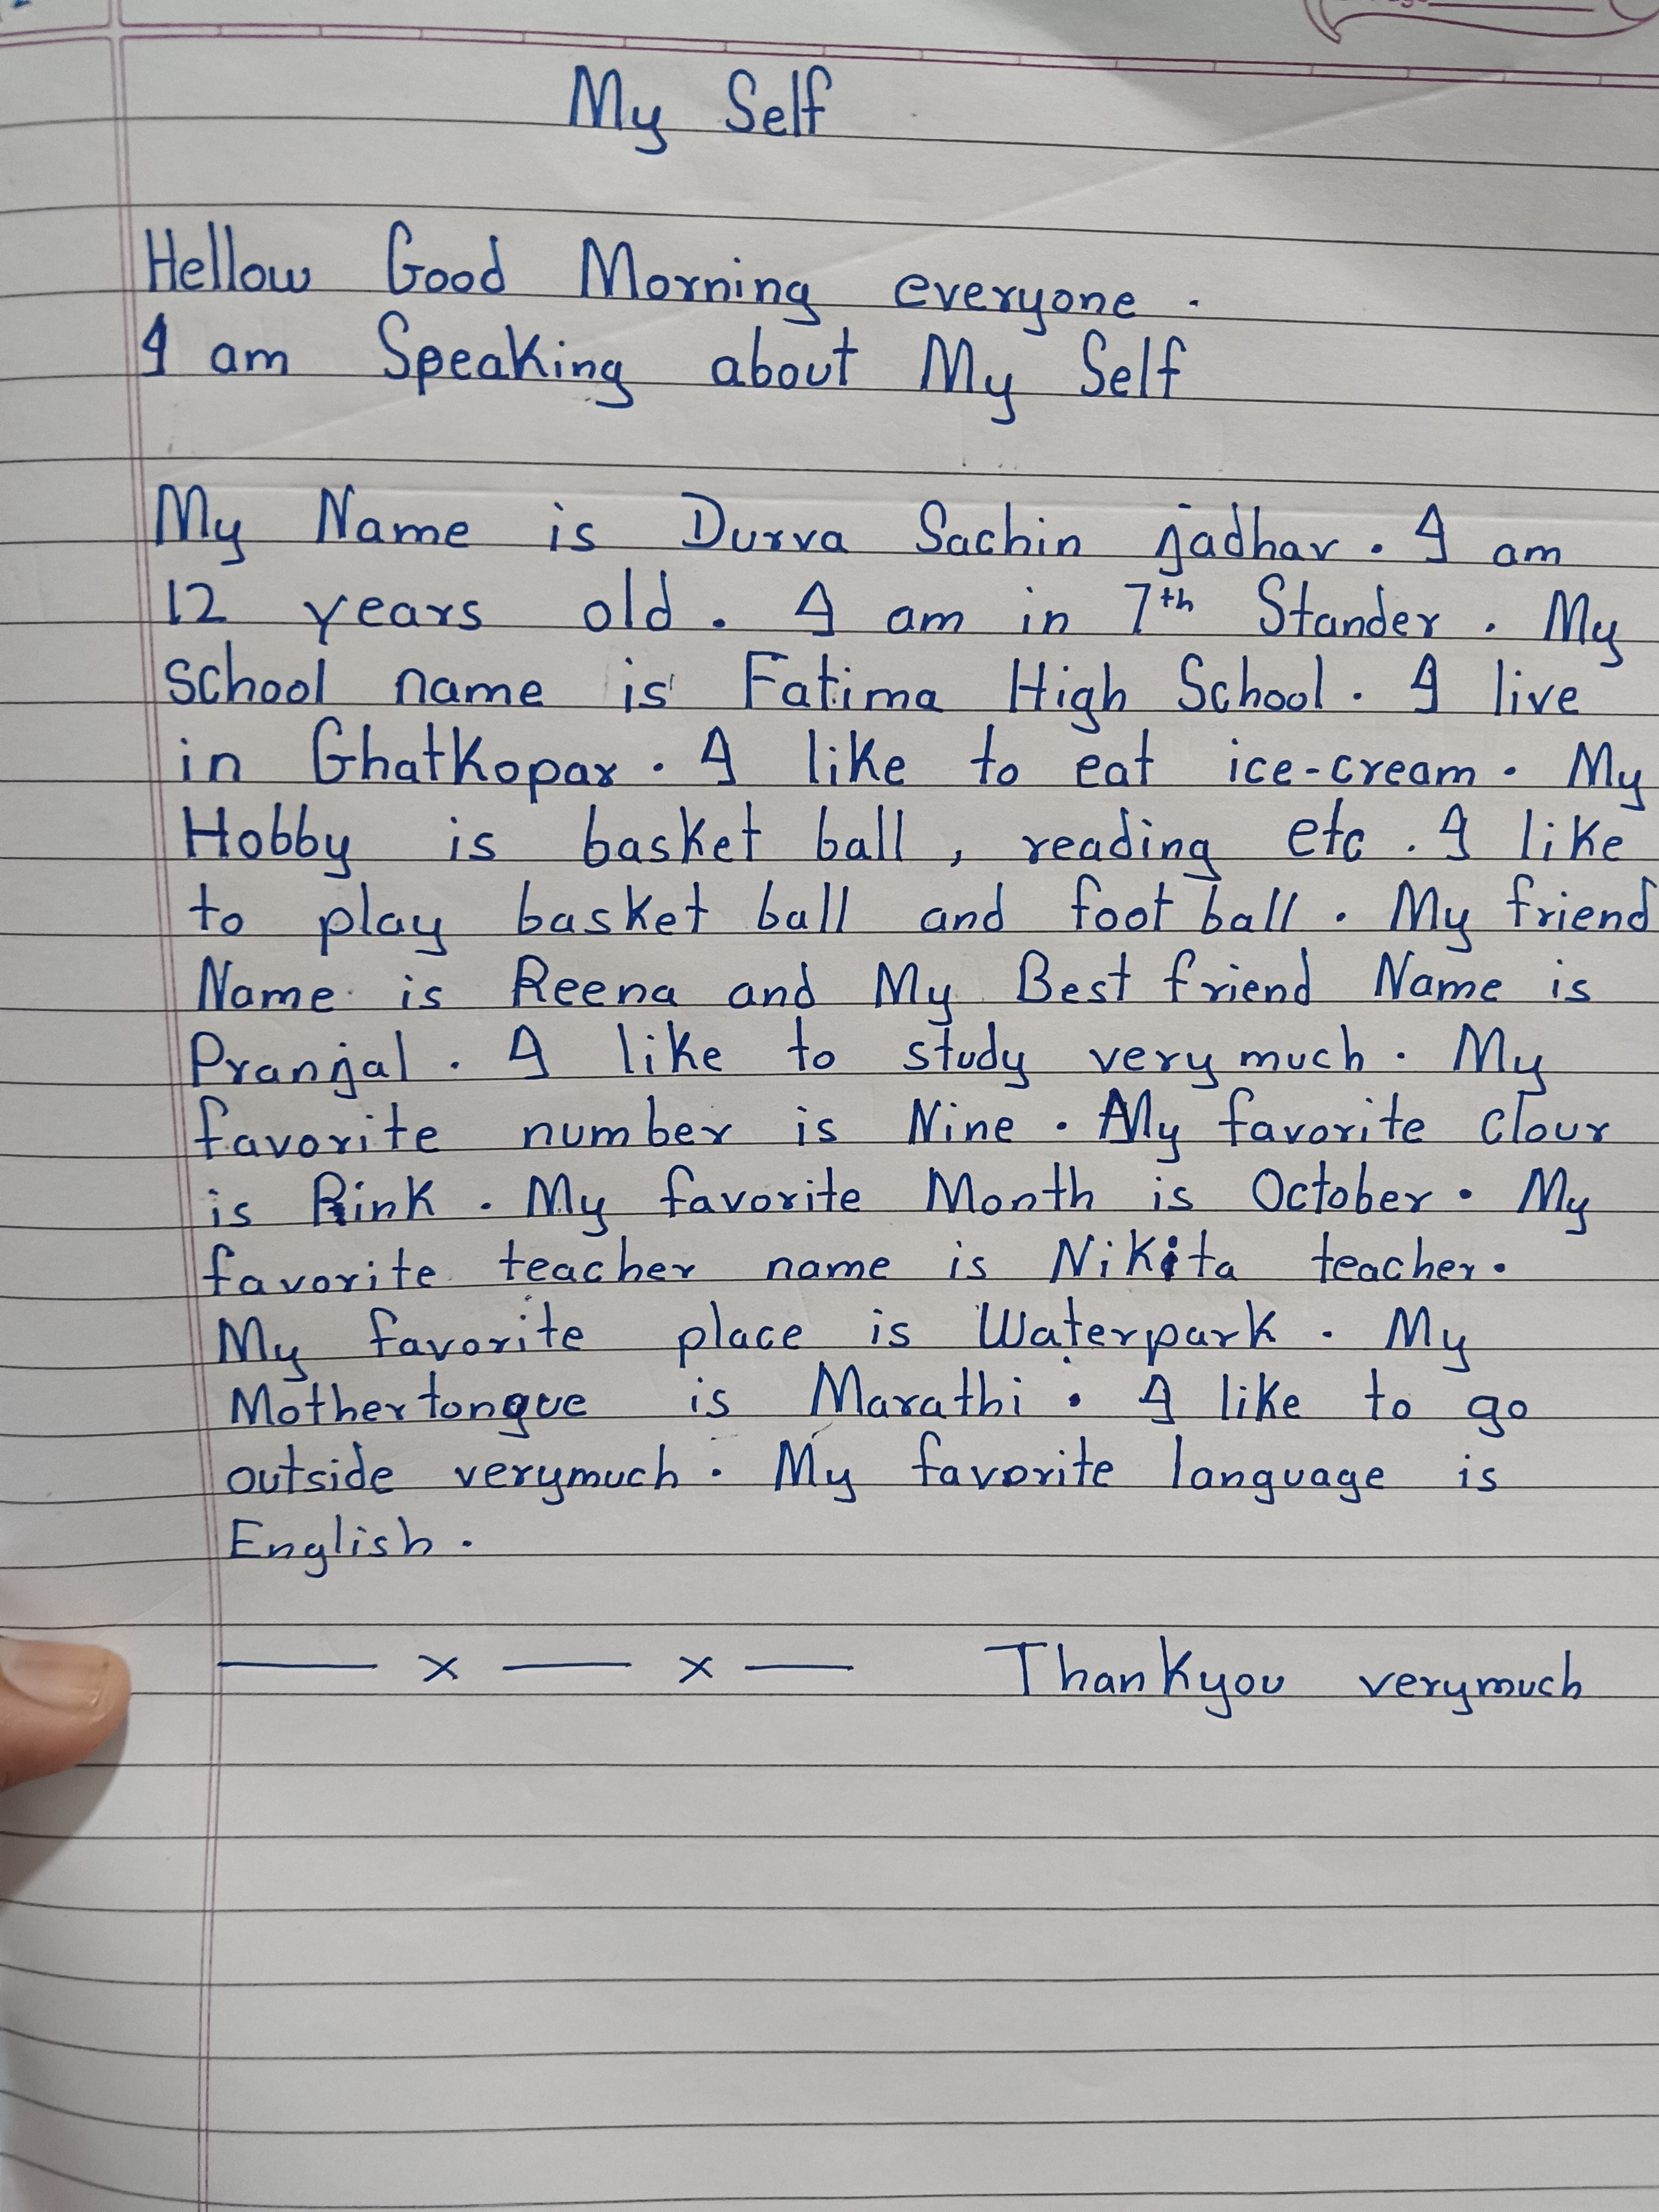 My Self
Hellow Good Morning everyone.
I am Speaking about My Self
My Name is Durva Sachin jadhav. I am
12 years old. I am in 7th Stander. My
school name is Fatima High School. I live
in Ghatkopar. I like to eat ice-cream. My
Hobby is basket ball, reading etc. I like
to play basket ball and foot ball. My friend
Name is Reena and My Best friend Name is
Pranjal. I like to study very much. My
favorite number is Nine. My favorite clour
is Pink. My favorite Month is October. My
favorite teacher name is Nikita teacher.
My favorite place is Waterpark. My
Mothertongue is Marathi. I like to go
outside verymuch. My favorite language is
English.
— x — x — Thankyou verymuch